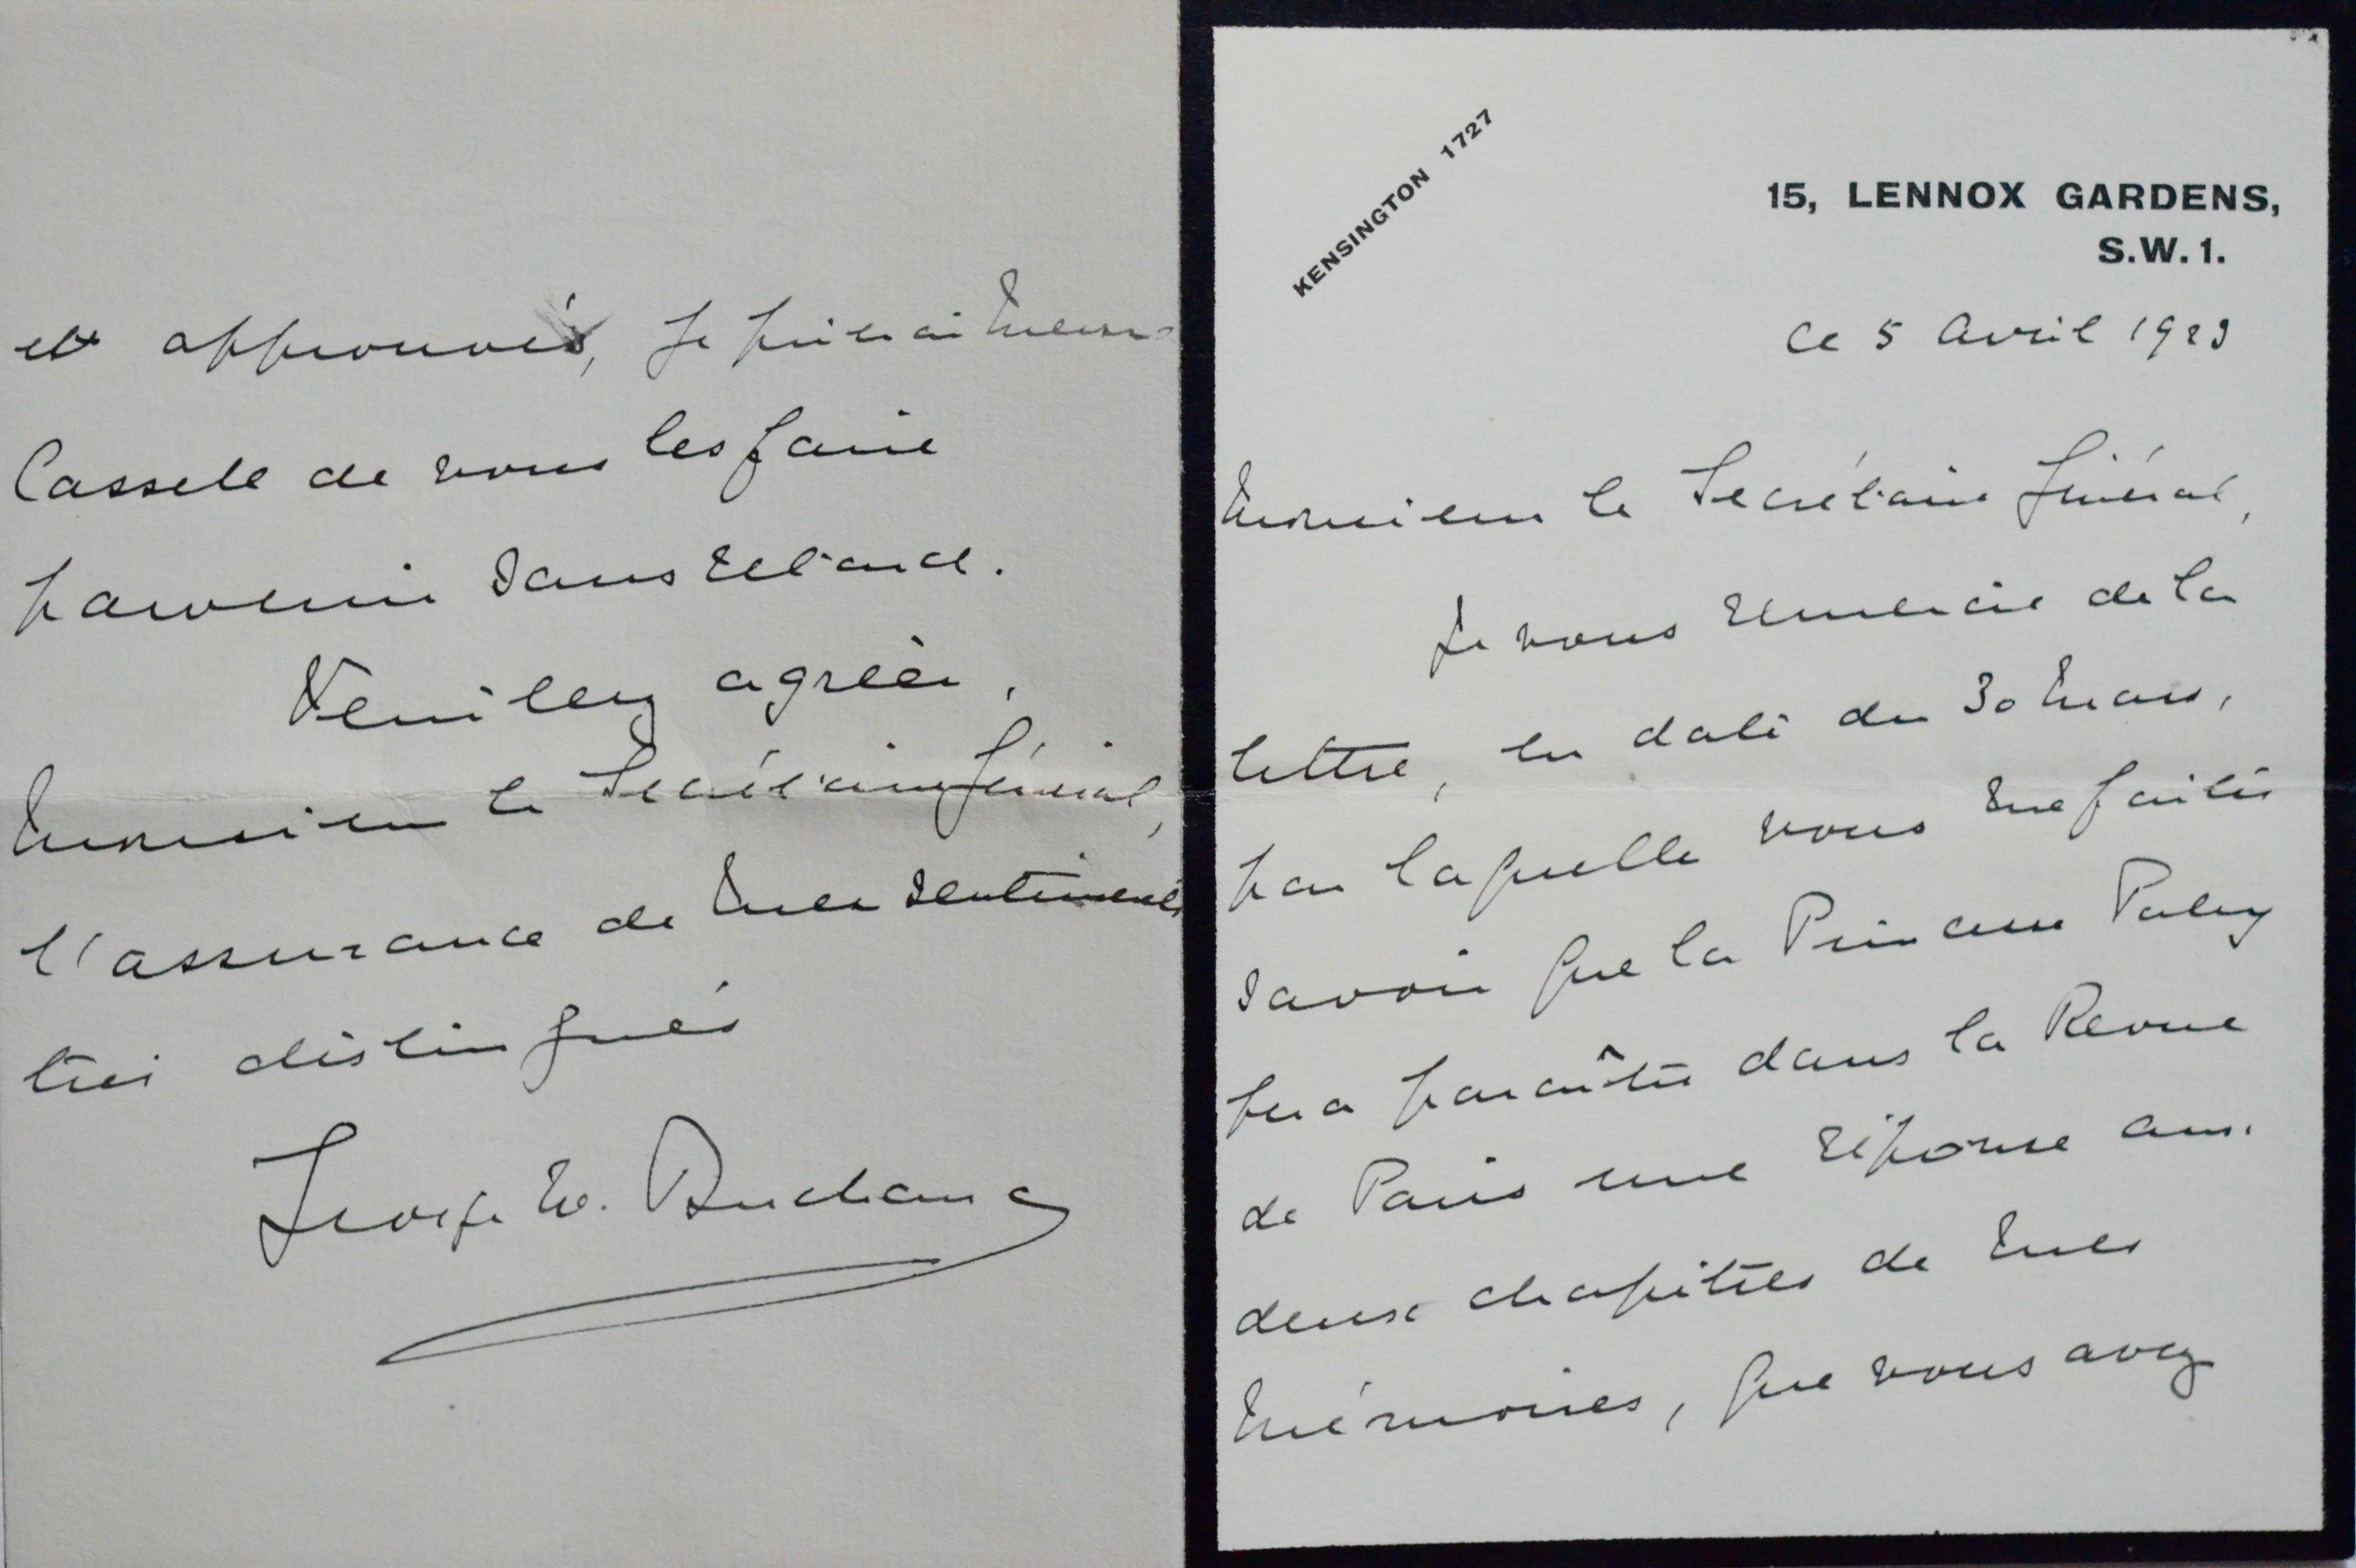 KENSINGTON 1727
15, LENNOX GARDENS,
S.W. 1.
Ce 5 avril 1923
Monsieur le Secrétaire Général,
Je vous remercie de la
lettre, en date du 30 Mars,
par laquelle vous me faites
savoir que la Princesse Paley
fera paraître dans la Revue
de Paris une réponse aux
deux chapitres de mes
Mémoires, que vous avez
et approuvés, je prierai Messrs
Cassell de vous les faire
parvenir sans retard.
Veuillez agréer,
Monsieur le Secrétaire Général,
l'assurance de mes sentiments
très distingués
George W. Buchanan